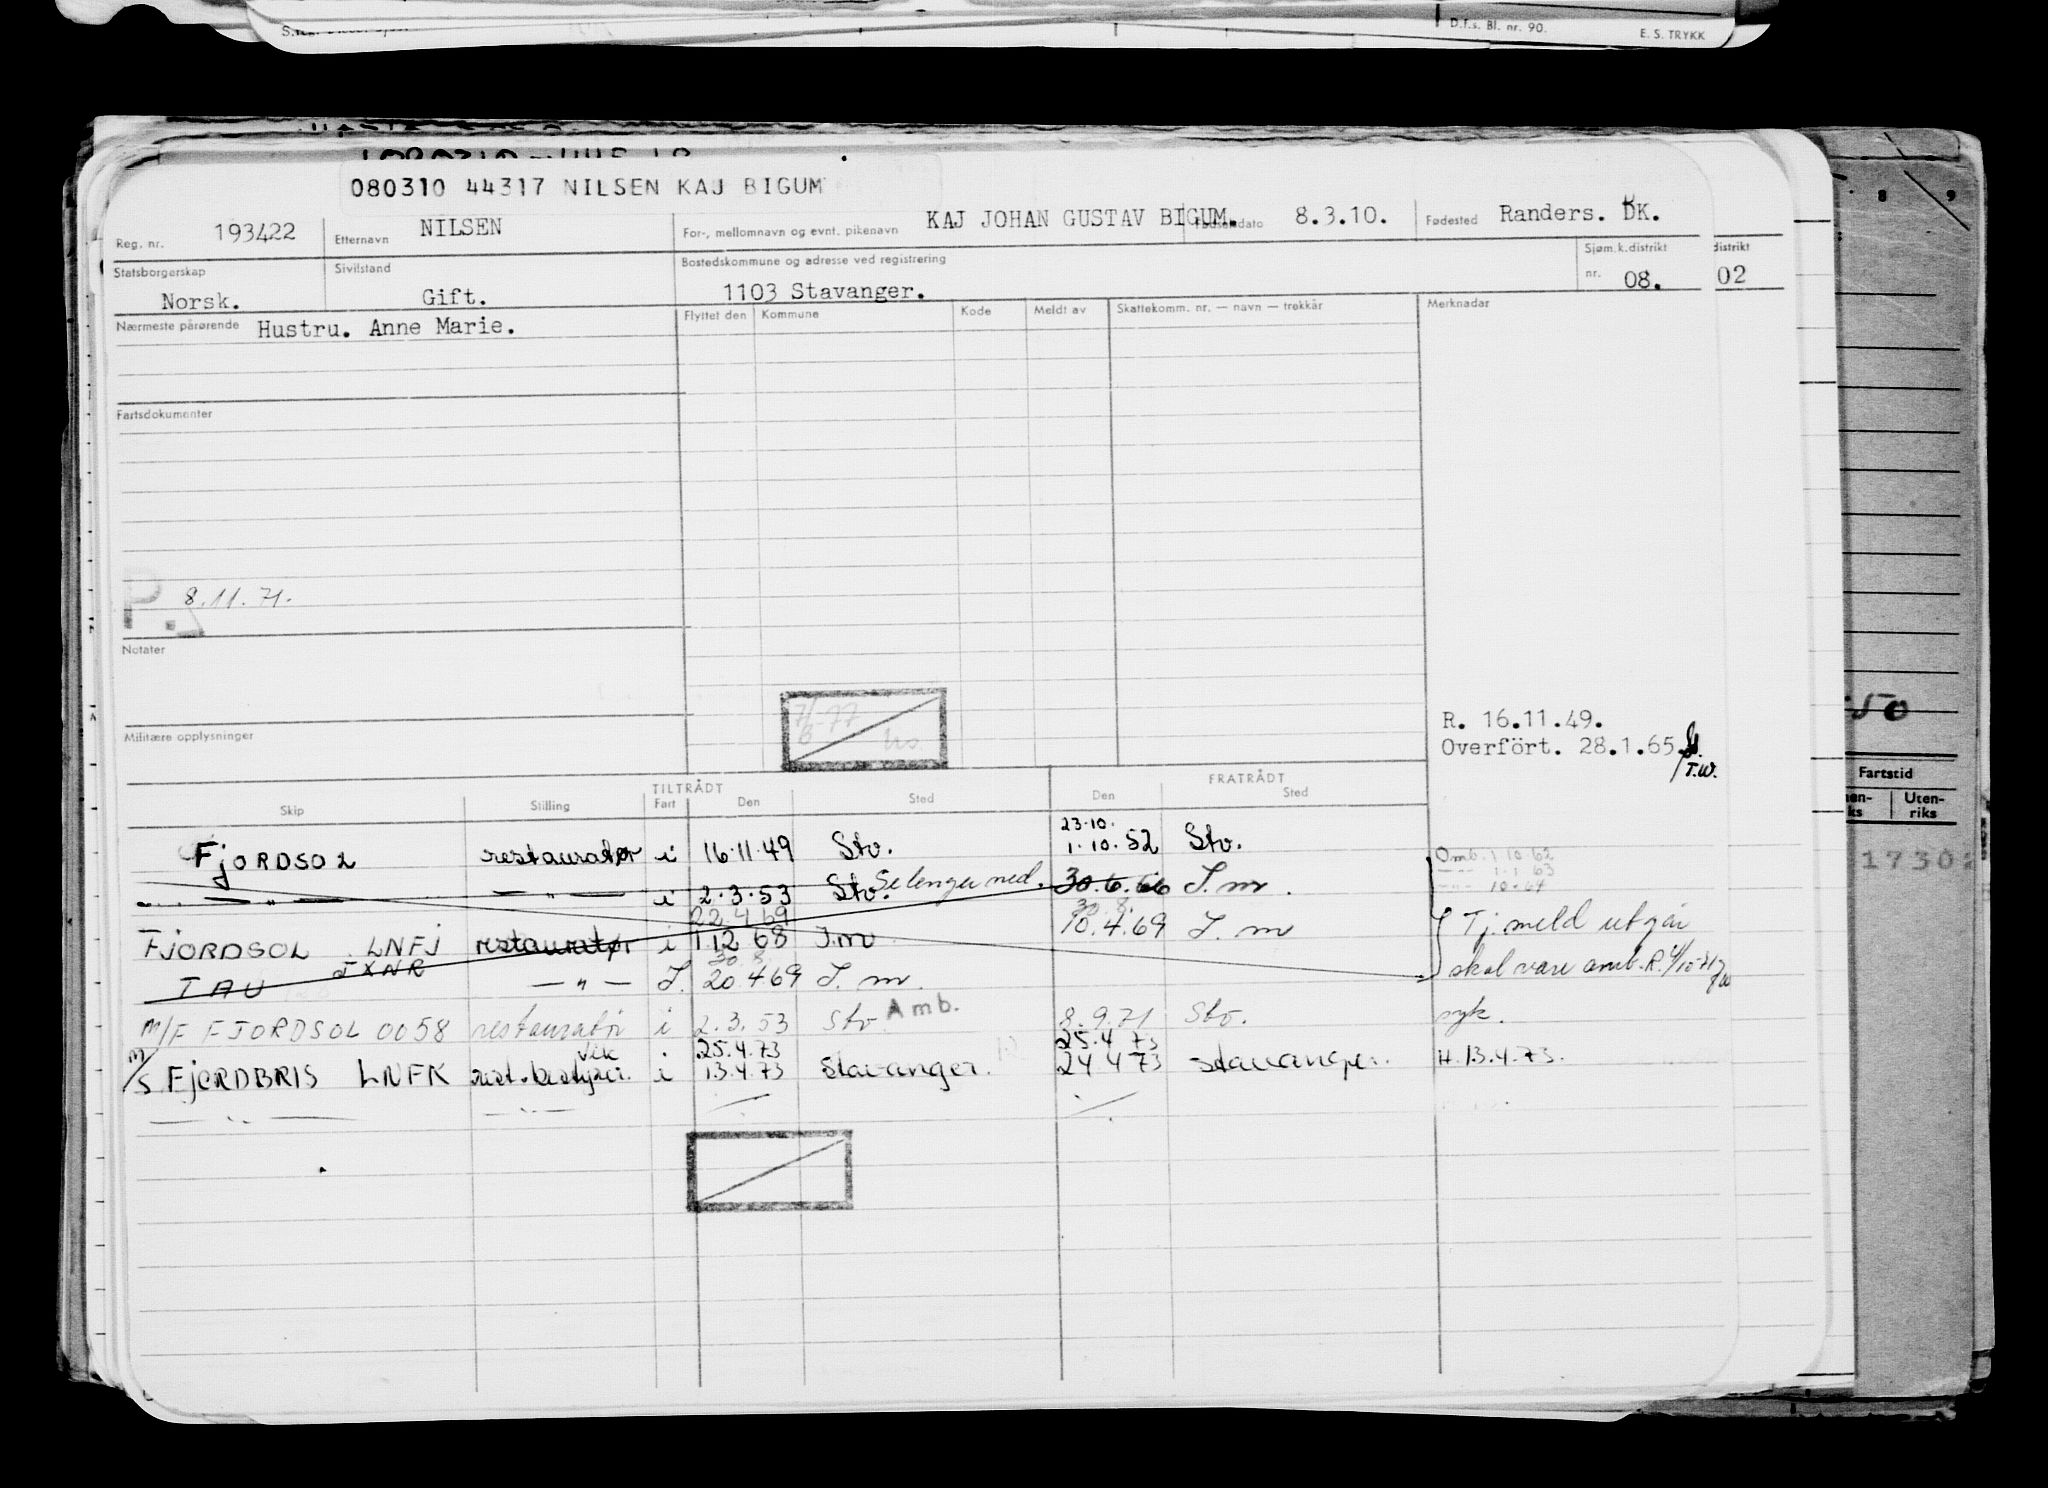 D.f.s. Bl. nr. 90.
E. S. TRYKK
080310 44317 NILSEN KAJ BIGUM
Reg. nr. 193422 Etternavn NILSEN For-, mellomnavn og evnt. pikenavn KAJ JOHAN GUSTAV BIGUM. Fødselsdato 8.3.10. Fødested Randers. DK.
Statsborgerskap Sivilstand Bostedskommune og adresse ved registrering Sjøm.k.distrikt distrikt
Norsk. Gift. 1103 Stavanger. nr. 08. 02
Nærmeste pårørende Hustru. Anne Marie. Flyttet den Kommune Kode Meldt av Skattekomm. nr. — navn — trekkår Merknadar
Fartsdokumenter
P. 8.11.71.
Notater
7/6-77
R. 16.11.49.
Overført. 28.1.65.
T.W.
Militære opplysninger
50
Fartstid
Uten-
riks
TILTRÅDT FRATRÅDT
Skip Stilling Fart Den Sted Den Sted
23.10.
FjORDSOL restauratør i 16.11.49 Stv. 1.10.52 Stv.
Omb. 1.10.62
-"- 1.1.63
-"- 10.64
17302
— " — — " — i 2.3.53 Stv. Se lenger ned. 30.6.66 S.m.
22.4.69 30.8.
FJORDSOL LNFJ restauratør i 1.12.68 S.m 10.4.69 S.m Tj.meld utgår
JXNR 30.8.
TAU — " — S. 20.4.69 S.m. skal være amb. R. 4/10-71
M/F FJORDSOL 0058 restauratør i 2.3.53 Stv. Amb. 8.9.71 Stv. syk.
vik 25.4.73 25.4.73
M/S FjORDBRIS LNFK rest.bestyrer. i 13.4.73 Stavanger. 24.4.73 Stavanger. H. 13.4.73.
— " — — " —